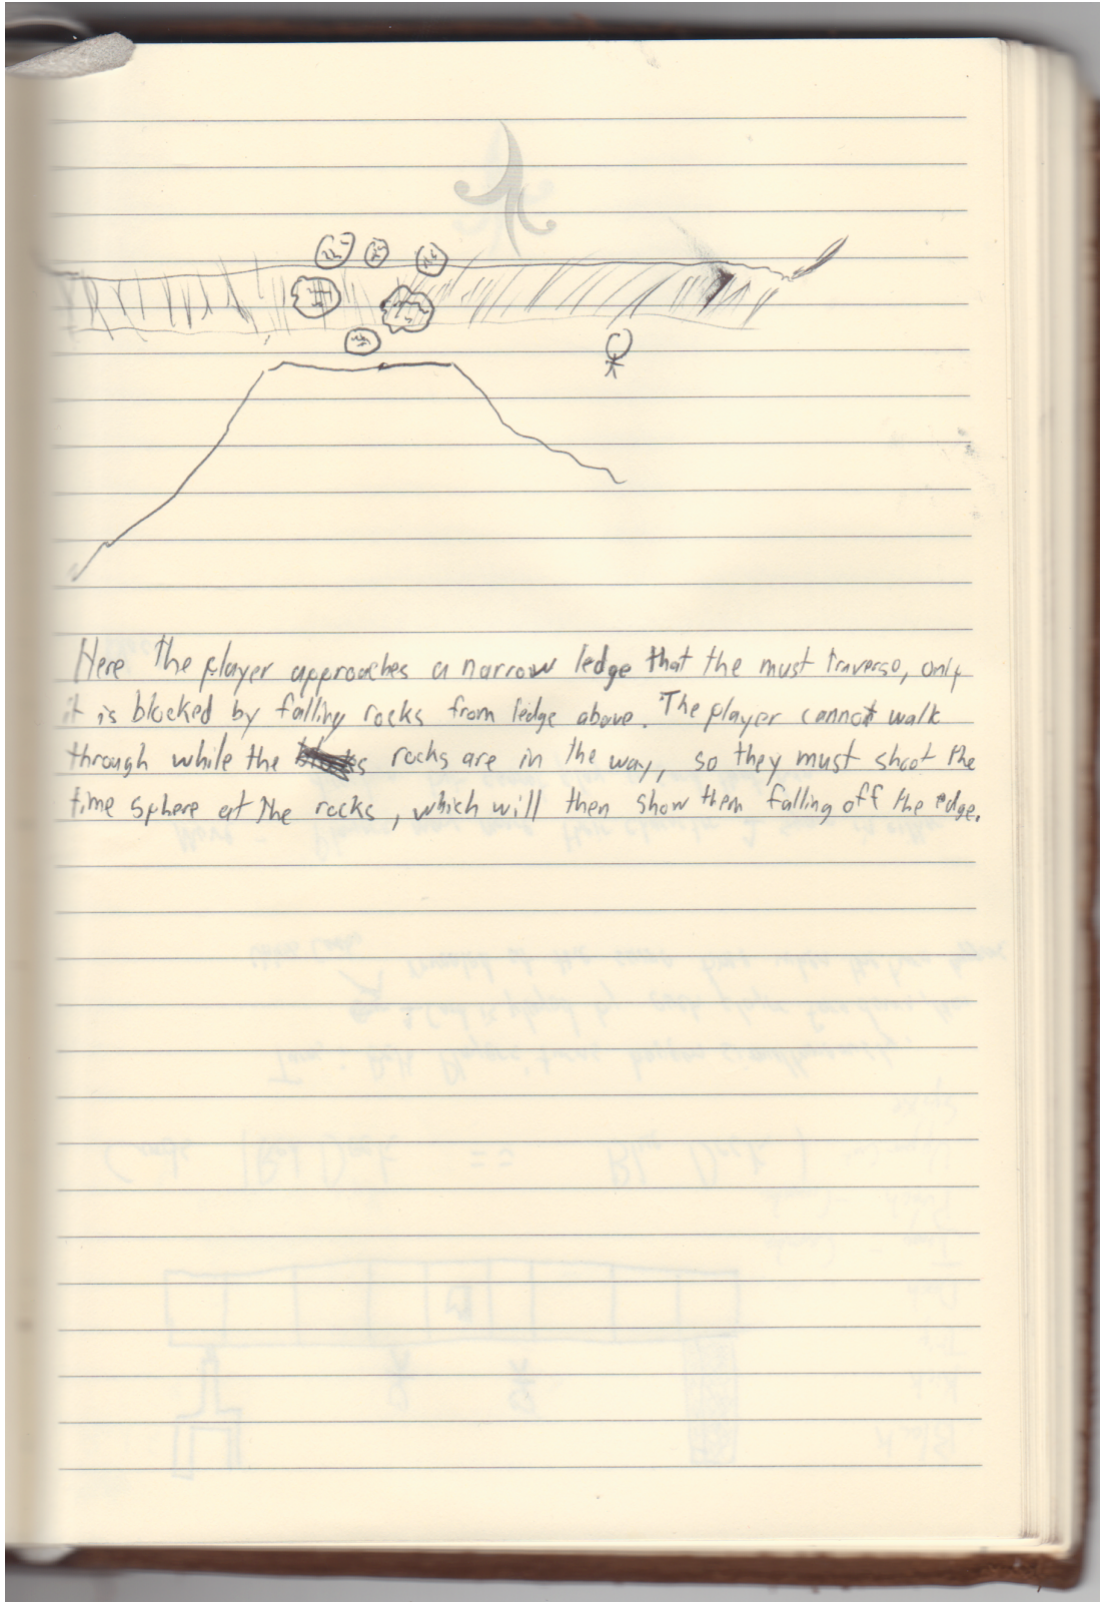 Here the player approaches a narrow ledge that the must traverse, only
it is blocked by falling rocks from ledge above. The player cannot walk
through while the rocks are in the way, so they must shoot the
time sphere at the rocks, which will then show them falling off the edge.